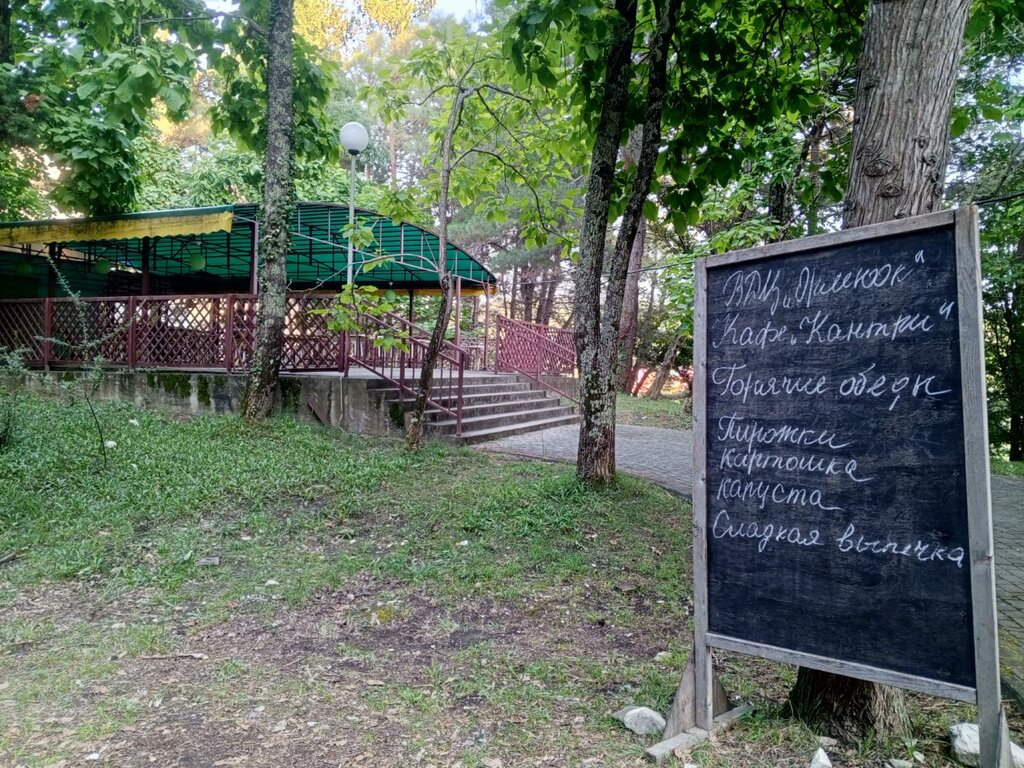 ВДЦ „Орленок"
Кафе „Кантри"
Горячие обеды
Пирожки
картошка
капуста
Сладкая выпечка